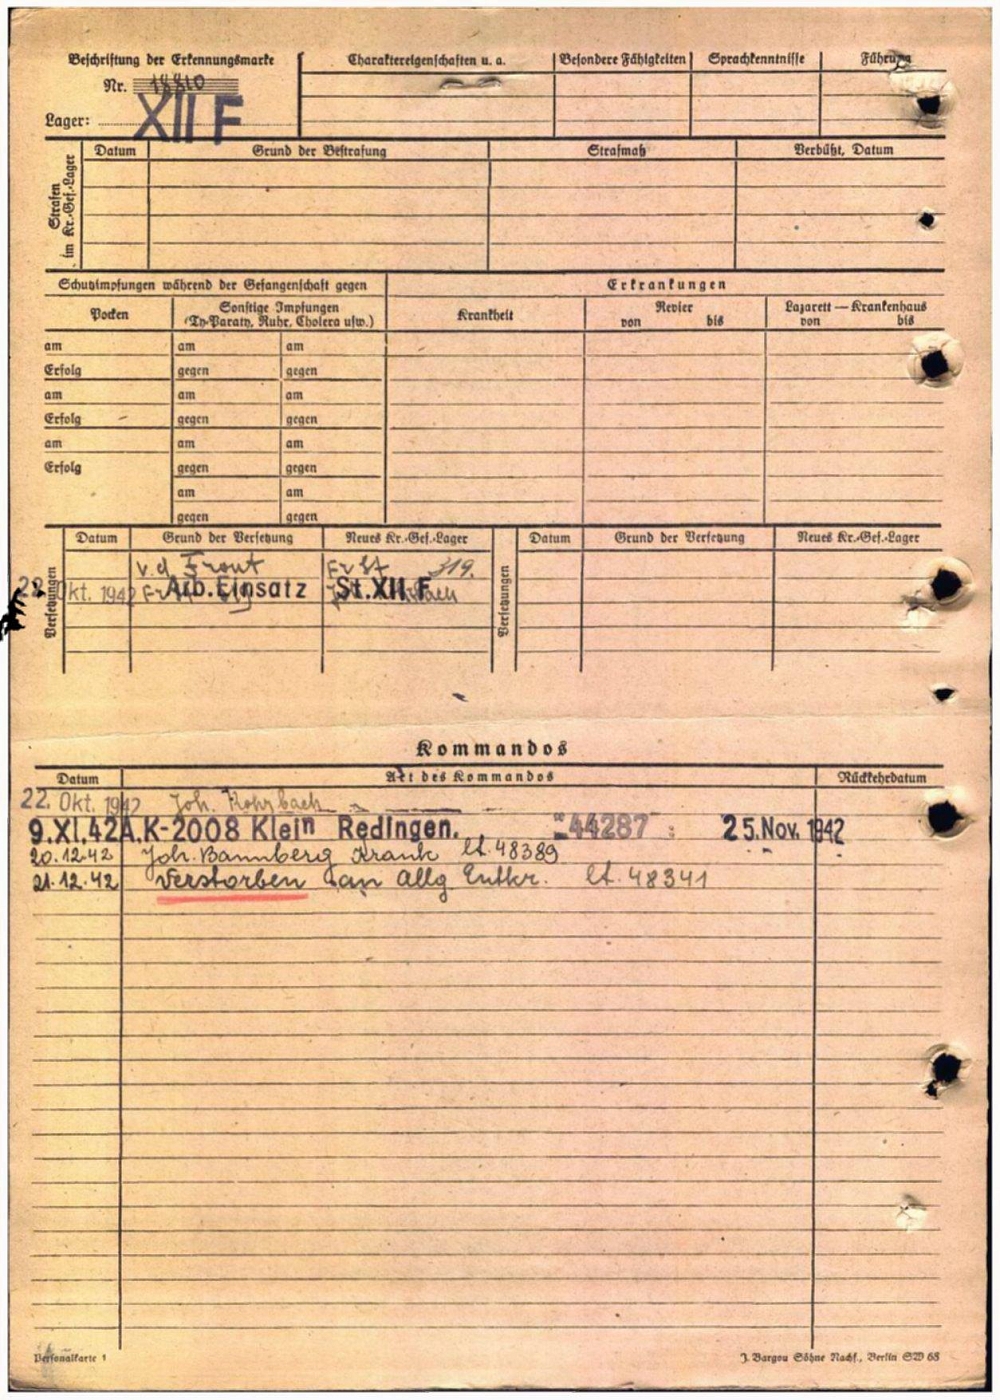 Beschriftung der Erkennungsmarke
Nr. 18810
Lager: XII F
Charaktereigenschaften u. a.
Besondere Fähigkeiten
Sprachkenntnisse
Führung
Strafen im Kr.-Gef.-Lager
Datum
Grund der Bestrafung
Strafmaß
Verbüßt, Datum
Schutzimpfungen während der Gefangenschaft gegen
Erkrankungen
Pocken
Sonstige Impfungen
(Ty-Paraty, Ruhr, Cholera usw.)
Krankheit
Revier
von bis
Lazarett — Krankenhaus
von bis
am am am
Erfolg gegen gegen
am am am
Erfolg gegen gegen
am am am
Erfolg gegen gegen
am am
gegen gegen
Versetzungen
Datum Grund der Versetzung Neues Kr.-Gef.-Lager
v. d. Front Fr St 319.
22. Okt. 1942 Arb. Einsatz St. XII F
Versetzungen
Datum Grund der Versetzung Neues Kr.-Gef.-Lager
Kommandos
Datum Art des Kommandos Rückkehrdatum
22. Okt. 1942 Joh. Rohrbach
9. XI. 42 A.K-2008 Klein Redingen. 44287 25. Nov. 1942
20.12.42 Joh. Bannberg Krank lt. 48389
21.12.42 Verstorben an Allg Entkr. lt. 48341
Personalkarte 1
J. Bargou Söhne Nachf., Berlin SW 68